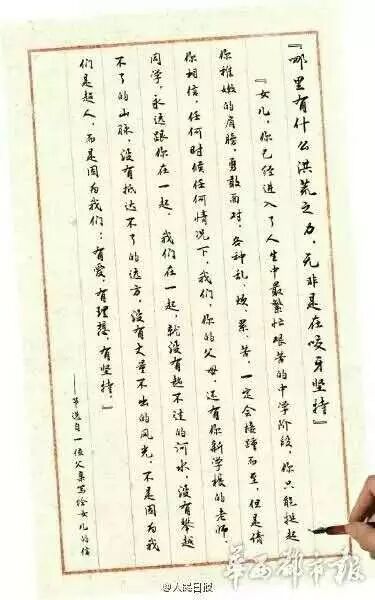 『哪里有什么洪荒之力，无非是在咬牙坚持』
『女儿，你已经进入了人生中最繁忙艰苦的中学阶段，你只能挺起
你稚嫩的肩膀，勇敢面对，各种乱、烦、累、苦，一定会接踵而至，但是请
你相信，任何时候任何情况下，我们，你的父母，还有你新学校的老师、
同学，永远跟你在一起，我们在一起，就没有趟不过的河水，没有攀越
不了的山脉，没有抵达不了的远方，没有丈量不出的风光，不是因为我
们是超人，而是因为我们：有爱，有理想，有坚持。』
——节选自一位父亲写给女儿的信
华西都市报
@人民日报